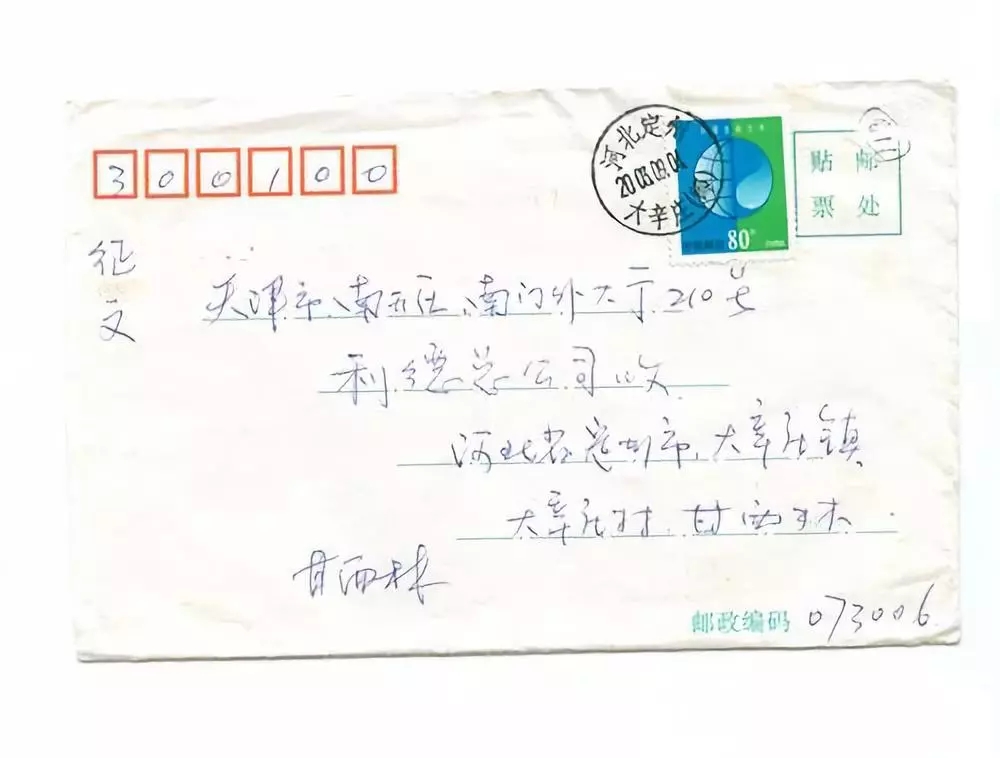 300100
河北定州
2003.09.01
大辛庄
80分
贴 邮
票 处
征文
天津市南开区南门外大街210号
利德总公司收
河北省定州市大辛庄镇
大辛庄村 甘西林
甘西林
邮政编码 073006